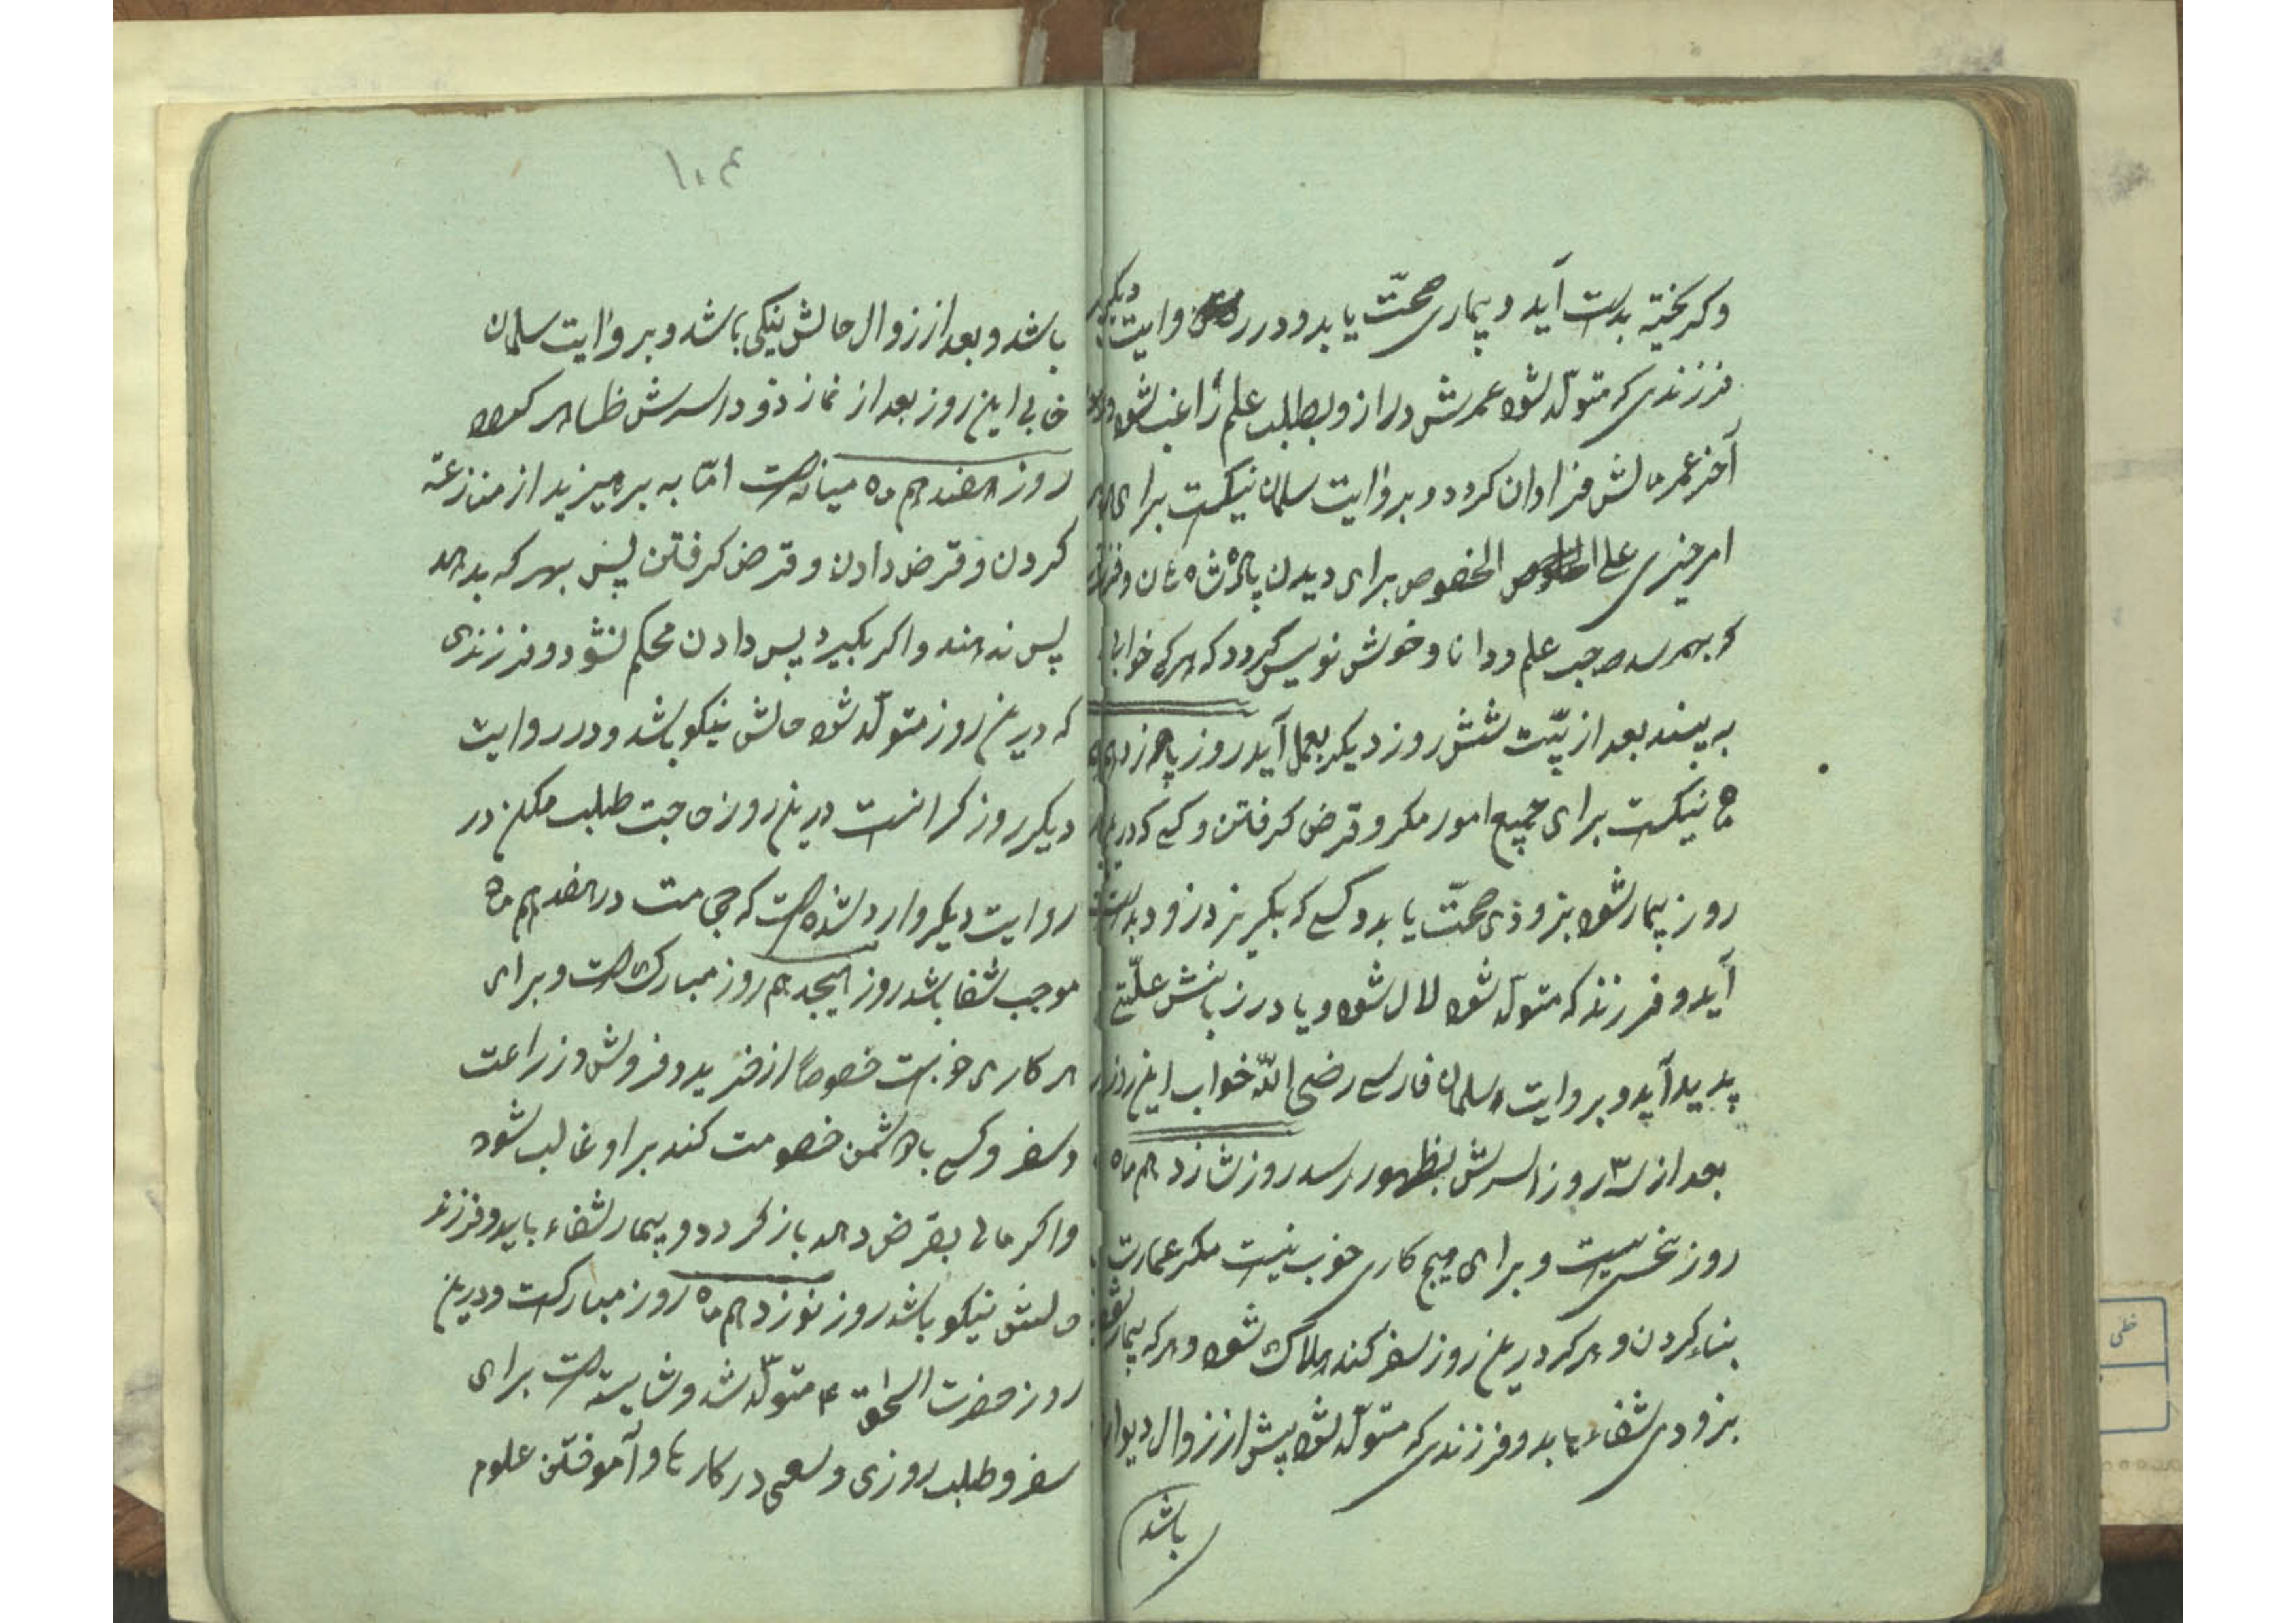 وکریخته بدست آید و بیماری صحّت یابد و در روایت دیکر
فرزندی که متولّد شود عمرش دراز و بطلب علم راغب شود و در
آخر عمر مالش فراوان کردد و بروایت سلمان نیکست برای هر
امر خیری علی الخصوص برای دیدن پادشاهان و فرزند
که بهمرسد صاحب علم و دانا و خوش نویس کردد که هرکه خواب
به بیند بعد از بیست شش روز دیکر بعمل آید روز پانزدهم
نیکست برای جمیع امور مکر و قرض کرفتن و کسی که در این
روز بیمار شود بزودی صحّت یابد و کسی که بکریزد زود بدست
آید و فرزند که متولّد شود لال شود و یا در زبانش علّتی
پدید آید و بروایت سلمان فارسی رضی الله خواب این روز
بعد از سه روز اثرش بظهور رسد روز شانزدهم ماه
روز نحس است و برای هیچ کاری خوب نیست مکر عمارت
بناء کردن و هرکه در این روز سفر کند هلاک شود و هرکه بیمار شود
بزودی شفاء یابد و فرزندی که متولّد شود پیش از زوال دیوانه
باشد
۱۰۴
باشد و بعد از زوال حالش نیکی باشد و بروایت سلمان
خابی این روز بعد از نماز دو اثرش ظاهر
روز هفدهم ماه میانه است امّا به پرهیزید از منازعة
کردن و قرض دادن و قرض کرفتن پس بهر که بدهد
پس ندهند و اکر بکیرد پس دادن محکم نشود و فرزندی
که در این روز متولّد شود حالش نیکو باشد و در روایت
دیکر روز کرانست در این روز حاجت طلب مکن در
روایت دیکر وارد شده است که حجامت در هفدهم ماه
موجب شفا باشد روز هیجدهم روز مبارک است و برای
هر کاری خوبست خصوصًا از خرید و فروش و زراعت
و سفر و کسی با دشمن خصومت کند بر او غالب شود
واکر مالی بقرض دهد باز کردد و بیمار شفاء یابد و فرزند
حالش نیکو باشد روز نوزدهم ماه روز مبارکست و در این
روز حضرت اسحق ع متولّد شد و شایسته است برای
سفر و طلب روزی و سعی در کارها و آموختن علوم